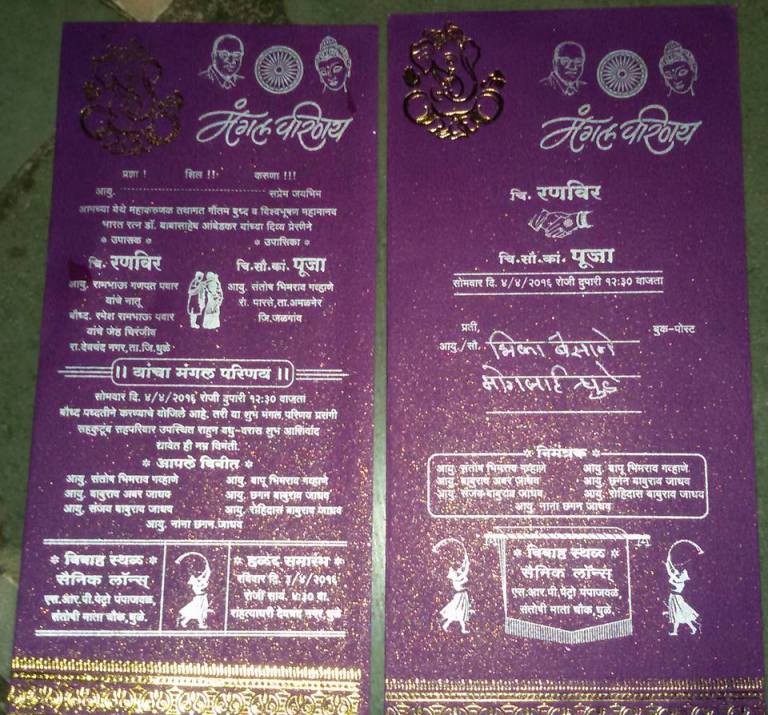 मंगल परिणय
प्रज्ञा ! शिल !! करुणा !!!
आयु. सप्रेम जयभिम
आपच्या येथे महाकारुणक तथागत गौतम बुध्द व विश्वभूषण महामानव
भारत रत्न डॉ. बाबासाहेब आंबेडकर यांच्या दिव्य प्रेरणेने
* उपासक * * उपासिका *
चि. रणविर चि.सौ.कां. पूजा
आयु. रामभाऊ गणपत पवार
यांचे नातू
बौध्द. रमेश रामभाऊ पवार
यांचे जेष्ठ चिरंजीव
रा.देवचंद नगर,ता.जि.धुळे
आयु. संतोष भिमराव गव्हाणे
रा. पारसे,ता.अमळनेर
जि.जळगाव
|| यांचा मंगल परिणय ||
सोमवार दि. ४/४/२०१६ रोजी दुपारी १२:३० वाजता
बौध्द पध्दतीने करण्याचे योजिले आहे. तरी या शुभ मंगल परिणय प्रसंगी
सहकुटूंब सहपरिवार उपस्थित राहुन वधु-वरास शुभ आशिर्वाद
द्यावेत ही नम्र विनंती.
* आपले विनीत *
आयु. संतोष भिमराव गव्हाणे आयु. बापू भिमराव गव्हाणे
आयु. बाबुराव अमर जाधव आयु. छगन बाबुराव जाधव
आयु. संजय बाबुराव जाधव आयु. रोहिदास बाबुराव जाधव
आयु. नाना छगन जाधव
* विवाह स्थळ *
सैनिक लॉन्स्
एस.आर.पी.पेट्रो पंपाजवळ,
संतोषी माता चौक,धुळे.
* हळद समारंभ *
रविवार दि. ३/४/२०१६
रोजी सायं. ४:३० वा.
राहत्याघरी देवचंद नगर,धुळे
मंगल परिणय
चि. रणविर
चि.सौ.कां. पूजा
सोमवार दि. ४/४/२०१६ रोजी दुपारी १२:३० वाजता
प्रती, बुक-पोस्ट
आयु./सौ. भिका बैसाने
मोगलाई धुळे
* निमंत्रक *
आयु. संतोष भिमराव गव्हाणे आयु. बापू भिमराव गव्हाणे
आयु. बाबुराव अमर जाधव आयु. छगन बाबुराव जाधव
आयु. संजय बाबुराव जाधव आयु. रोहिदास बाबुराव जाधव
आयु. नाना छगन जाधव
* विवाह स्थळ *
सैनिक लॉन्स्
एस.आर.पी.पेट्रो पंपाजवळ,
संतोषी माता चौक,धुळे.